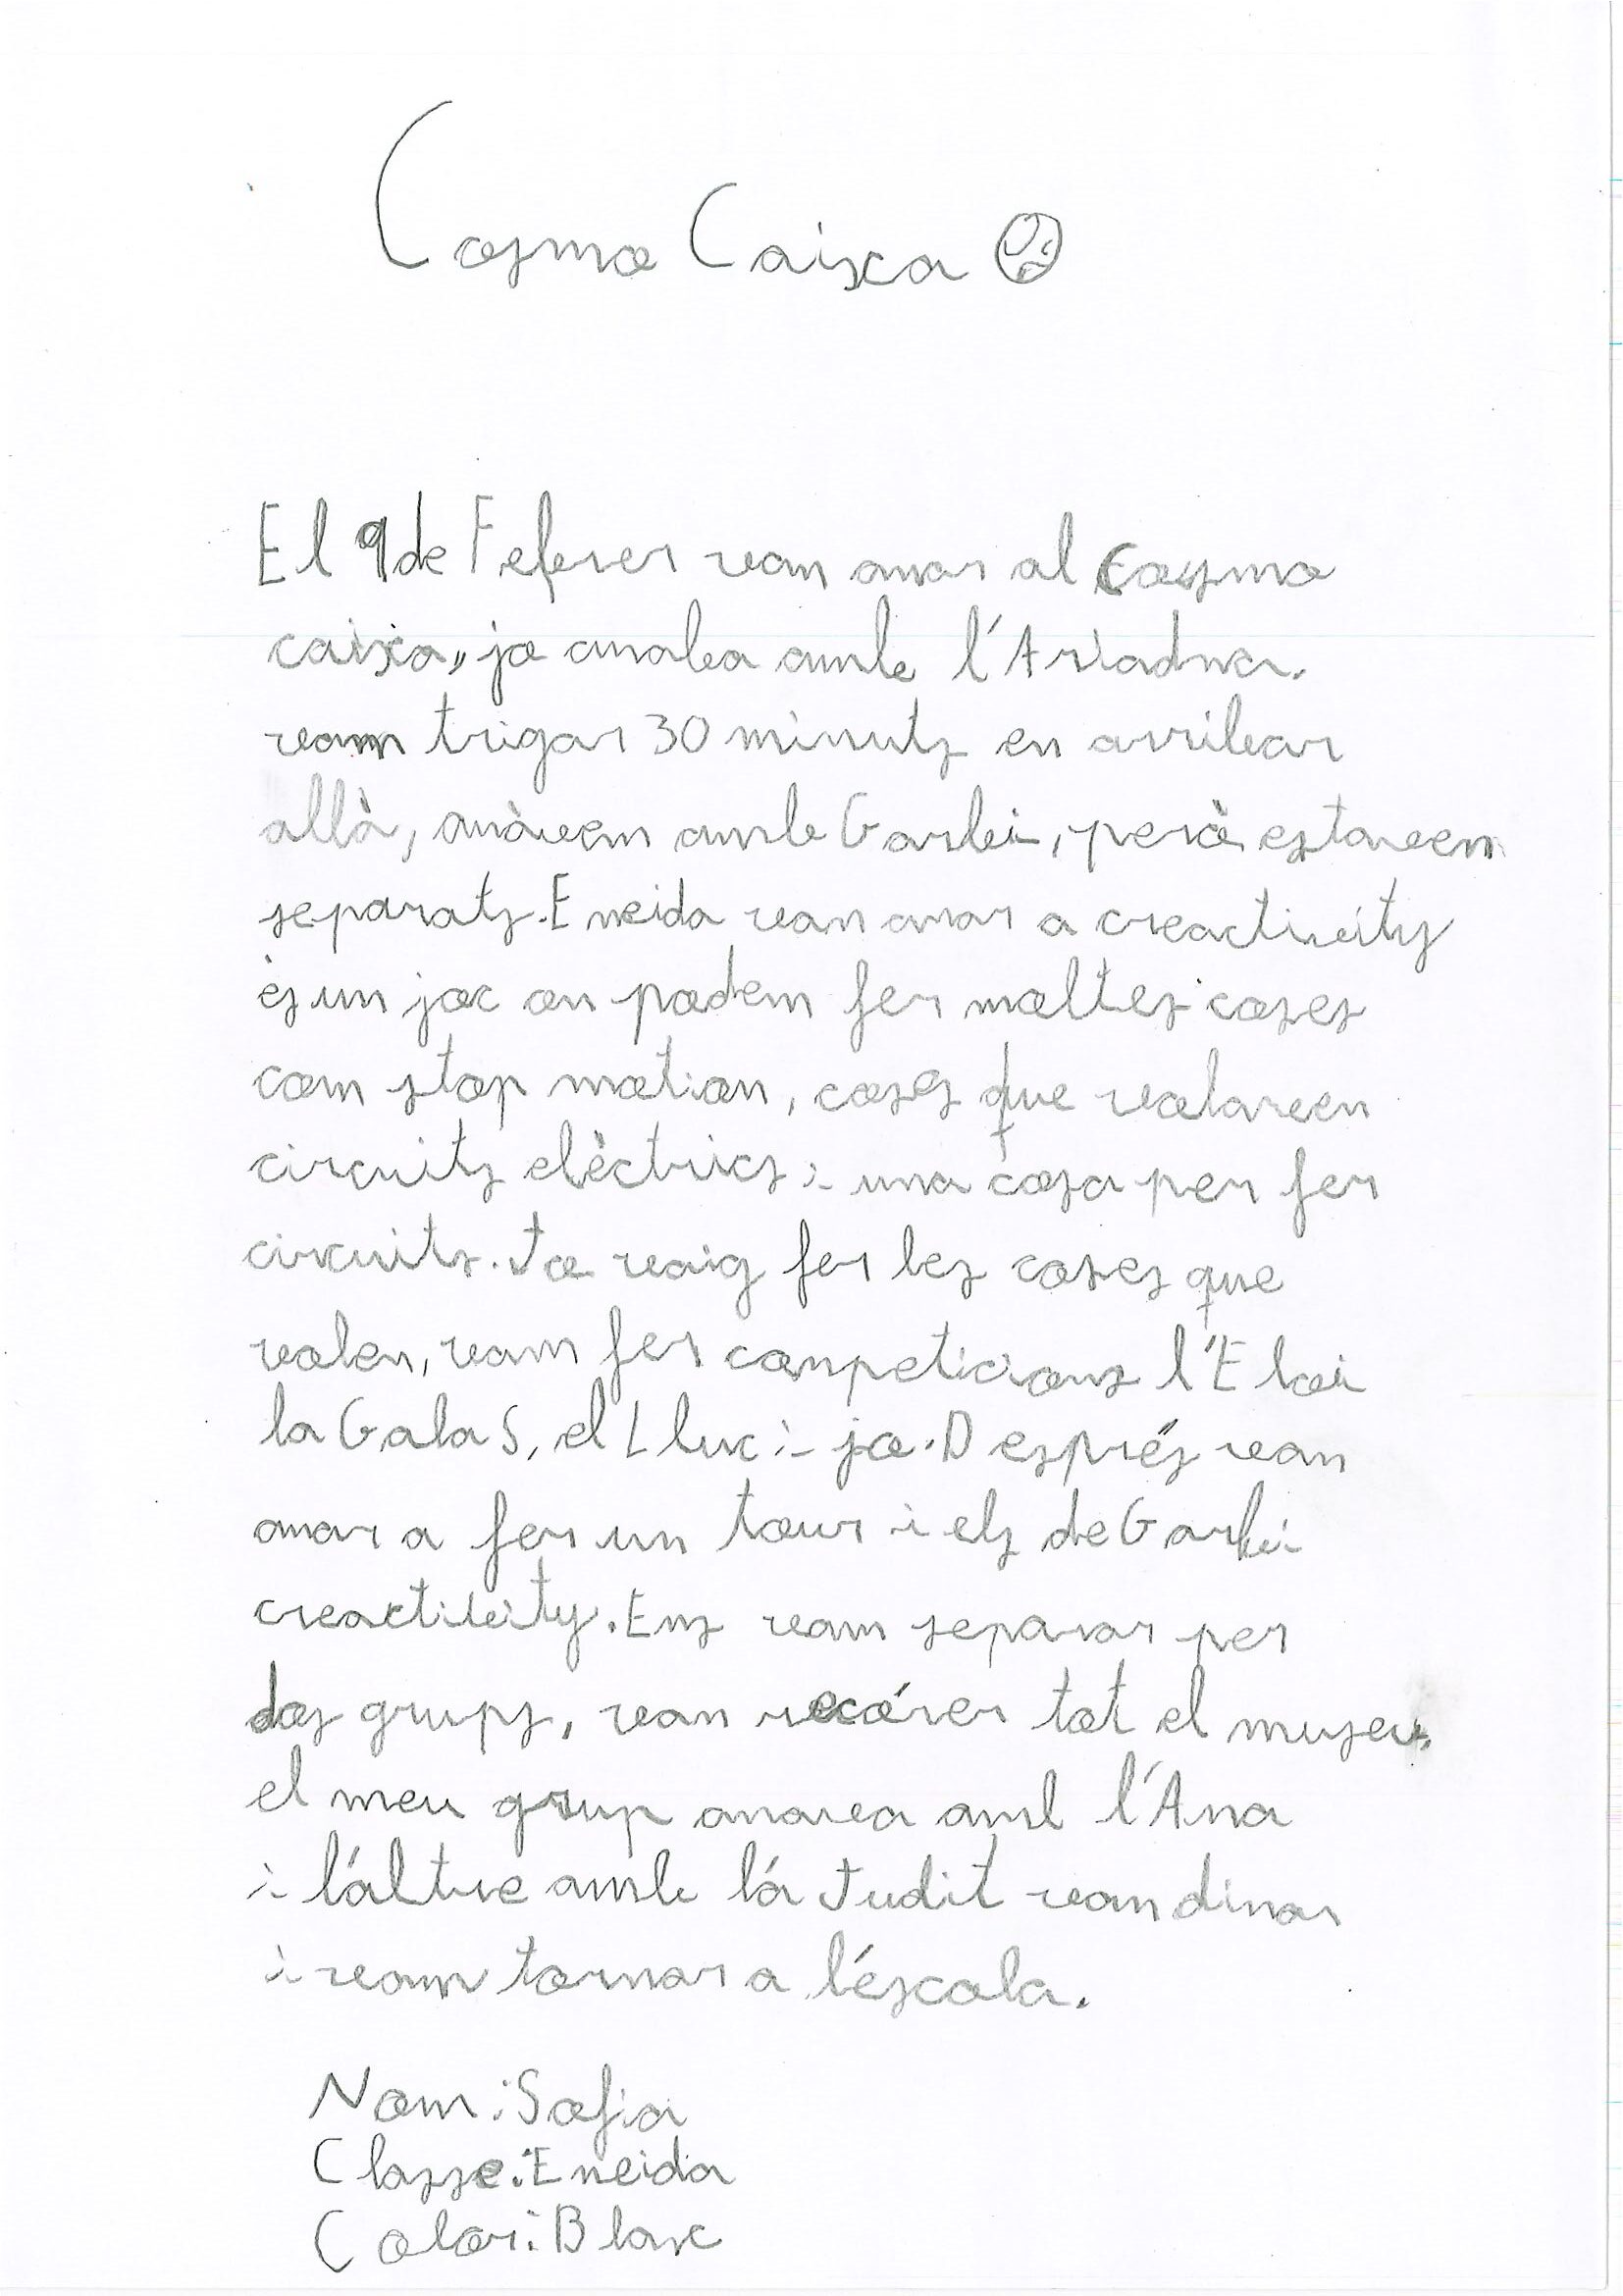 Cosmo Caixa
El 9 de Febrer van anar al Cosmo
caixa, jo anaba amb l'Ariadna.
vam trigar 30 minuts en arribar
allà, anàvem amb Garbí, però estavem
separats. Eneida van anar a creactivity
és un joc on podem fer moltes coses
com stop motion, coses que volaven
circuits elèctrics i una cosa per fer
circuits. Jo vaig fer les coses que
volen, vam fer conpeticions l'Eloi
la Gala S, el Lluc i jo. Després van
anar a fer un tour i els de Garbí
creactivity. Ens vam separar per
dos grups, van recórer tot el museu.
el meu grup anava amb l'Ana
i l'áltre amb lá Judit vam dinar
i vam tornar a l'éscola.
Nom: Sofia
Classe: Eneida
Color: Blanc